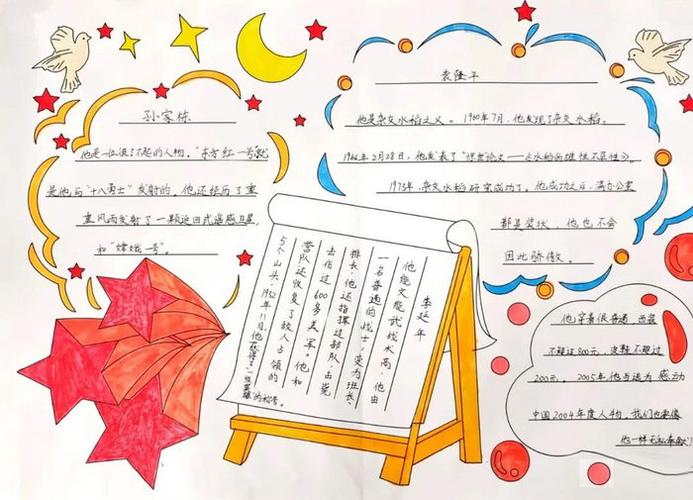 孙家栋
他是一位很了不起的人物，"东方红一号"就
是他与"十八勇士"发射的。他还经历了重
重风雨发射了一颗返回式遥感卫星，
和"嫦娥一号"。
袁隆平
他是杂交水稻之父。1960年7月，他发现了杂交水稻。
1966年2月28日，他发表了《
1973年，杂交水稻研究成功了。他成功之后，满办公室
都是奖状，他也不会
因此骄傲。
李延年
他能文能武战术高，他由
一名普通的战士，变为班长、
排长，他还指挥过部队，由
去伤过600多美军。他和
营队还收复了敌人占领的
5个山头，1952年11月，他获得了"一级英雄"的称号。
他穿着很普通，西装
不超过800元，皮鞋不超过
200元。2005年，他当选为感动
中国2004年度人物，我们也要像
他一样无私奉献！